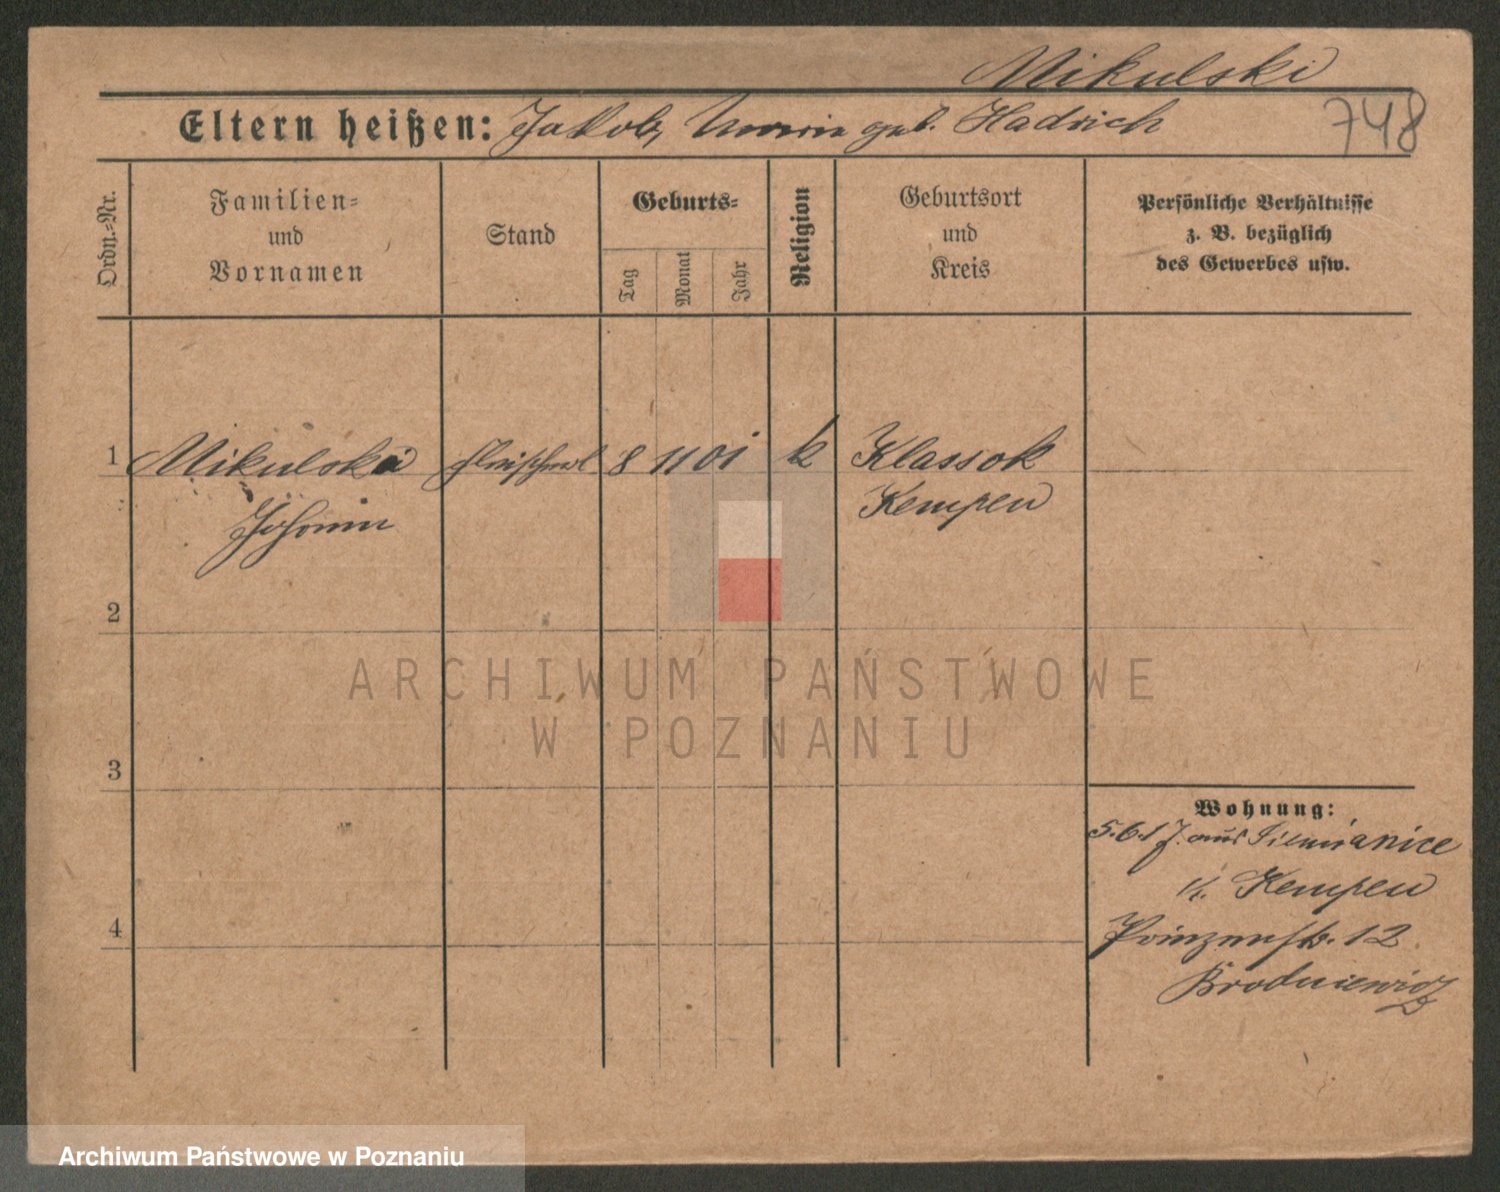 Mikulski
Eltern heißen: Jakob, Maria geb. Hadrich
748
Ordn.-Nr.
Familien-
und
Vornamen
Stand
Geburts-
Tag
Monat
Jahr
Religion
Geburtsort
und
Kreis
Persönliche Verhältnisse
z. B. bezüglich
des Gewerbes usw.
1 Mikulski 8 11 01 k Klassok
Johann Kempen
2
ARCHIWUM PAŃSTWOWE
W POZNANIU
3
Wohnung:
5.6.1 J. aus Siemianice
Kempen
4
Prinzenstr. 12
Brodniewicz
Archiwum Państwowe w Poznaniu